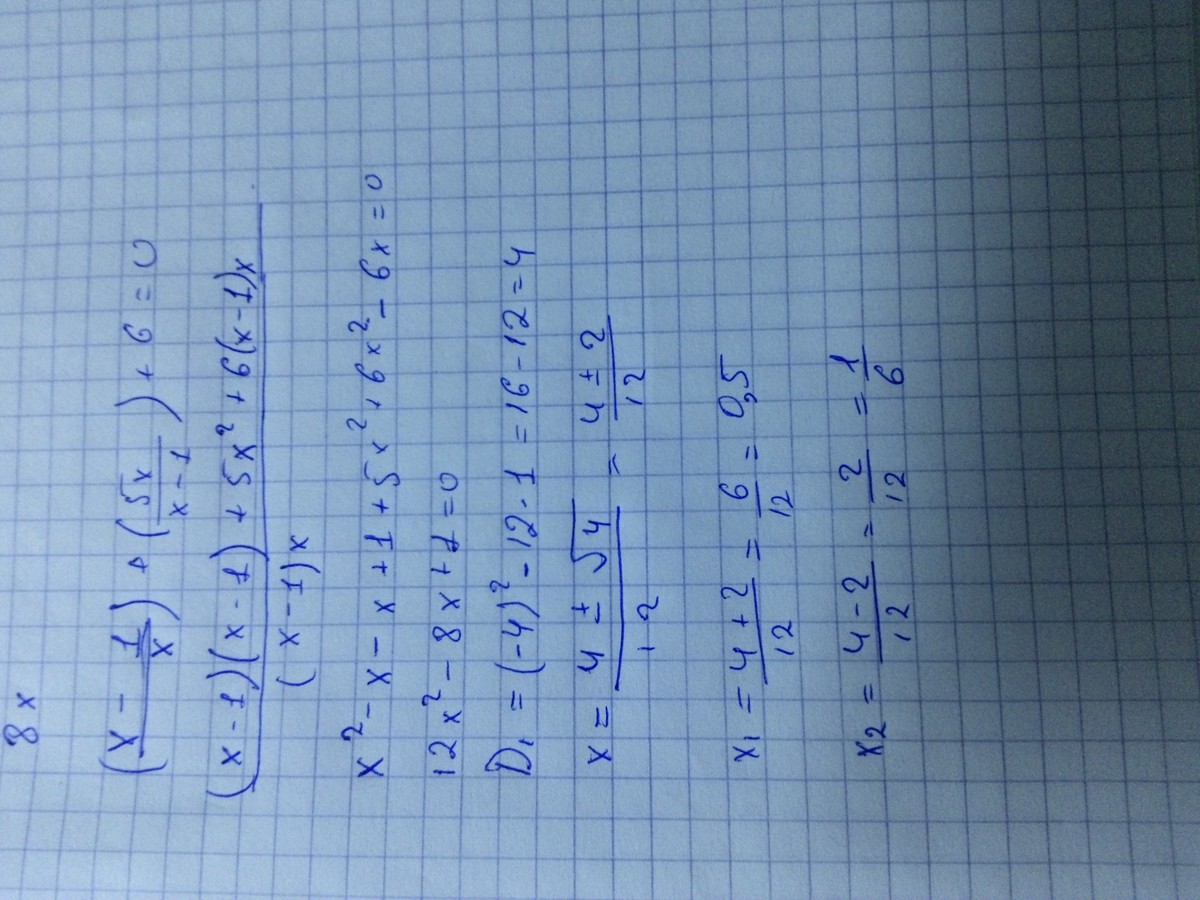 8x
(x - 1/x) + (5x/x - 1) + 6 = 0
(x - 1)(x - 1) + 5x² + 6(x - 1)x
(x - 1)x
x² - x - x + 1 + 5x² + 6x² - 6x = 0
12x² - 8x + 1 = 0
D₁ = (-4)² - 12 · 1 = 16 - 12 = 4
x = 4 ± √4/12 = 4 ± 2/12
x₁ = 4 + 2/12 = 6/12 = 0,5
x₂ = 4 - 2/12 = 2/12 = 1/6